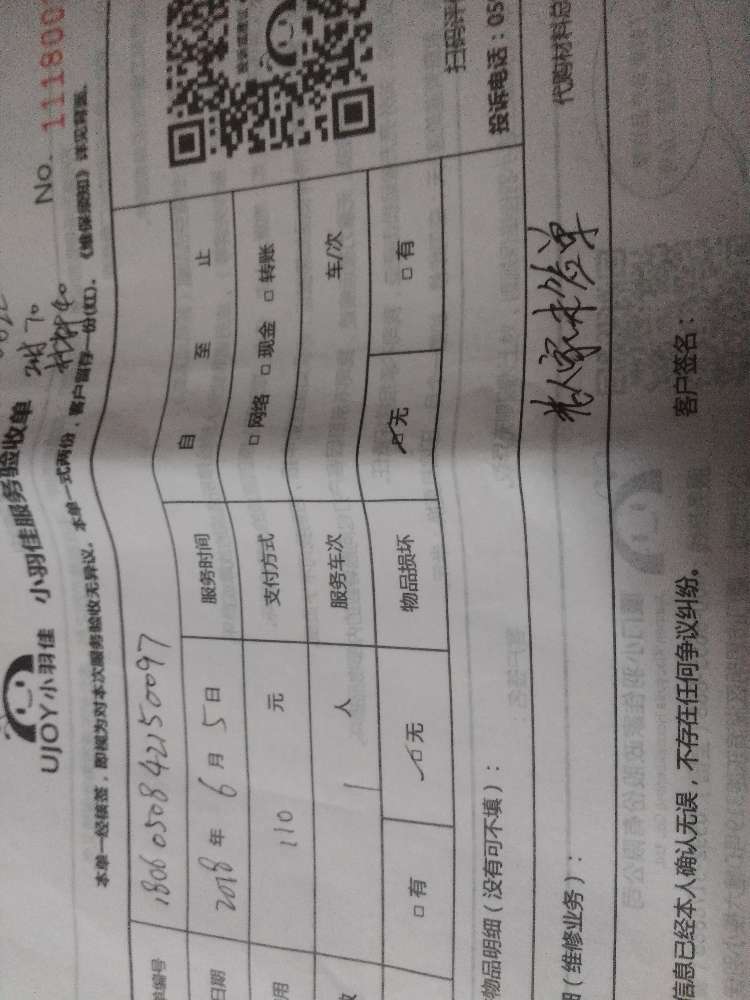 UJOY小羽佳 小羽佳服务验收单
No. 111800
本单一经核签，即视为对本次服务验收无异议。本单一式两份，客户留存一份(红)。《维保须知》详见背面。
材料40
单编号 1806050842150097
日期 2018 年 6 月 5 日 服务时间 自 至 止
用 110 元 支付方式 □ 网络 □ 现金 □ 转账
1 人 服务车次 车/次
□ 有 □ 无 物品损坏 □ 无 □ 有
扫码评
投诉电话：05
物品明细（没有可不填）：
细（维修业务）：
代购材料总
老人家未签单
信息已经本人确认无误，不存在任何争议纠纷。 客户签名：